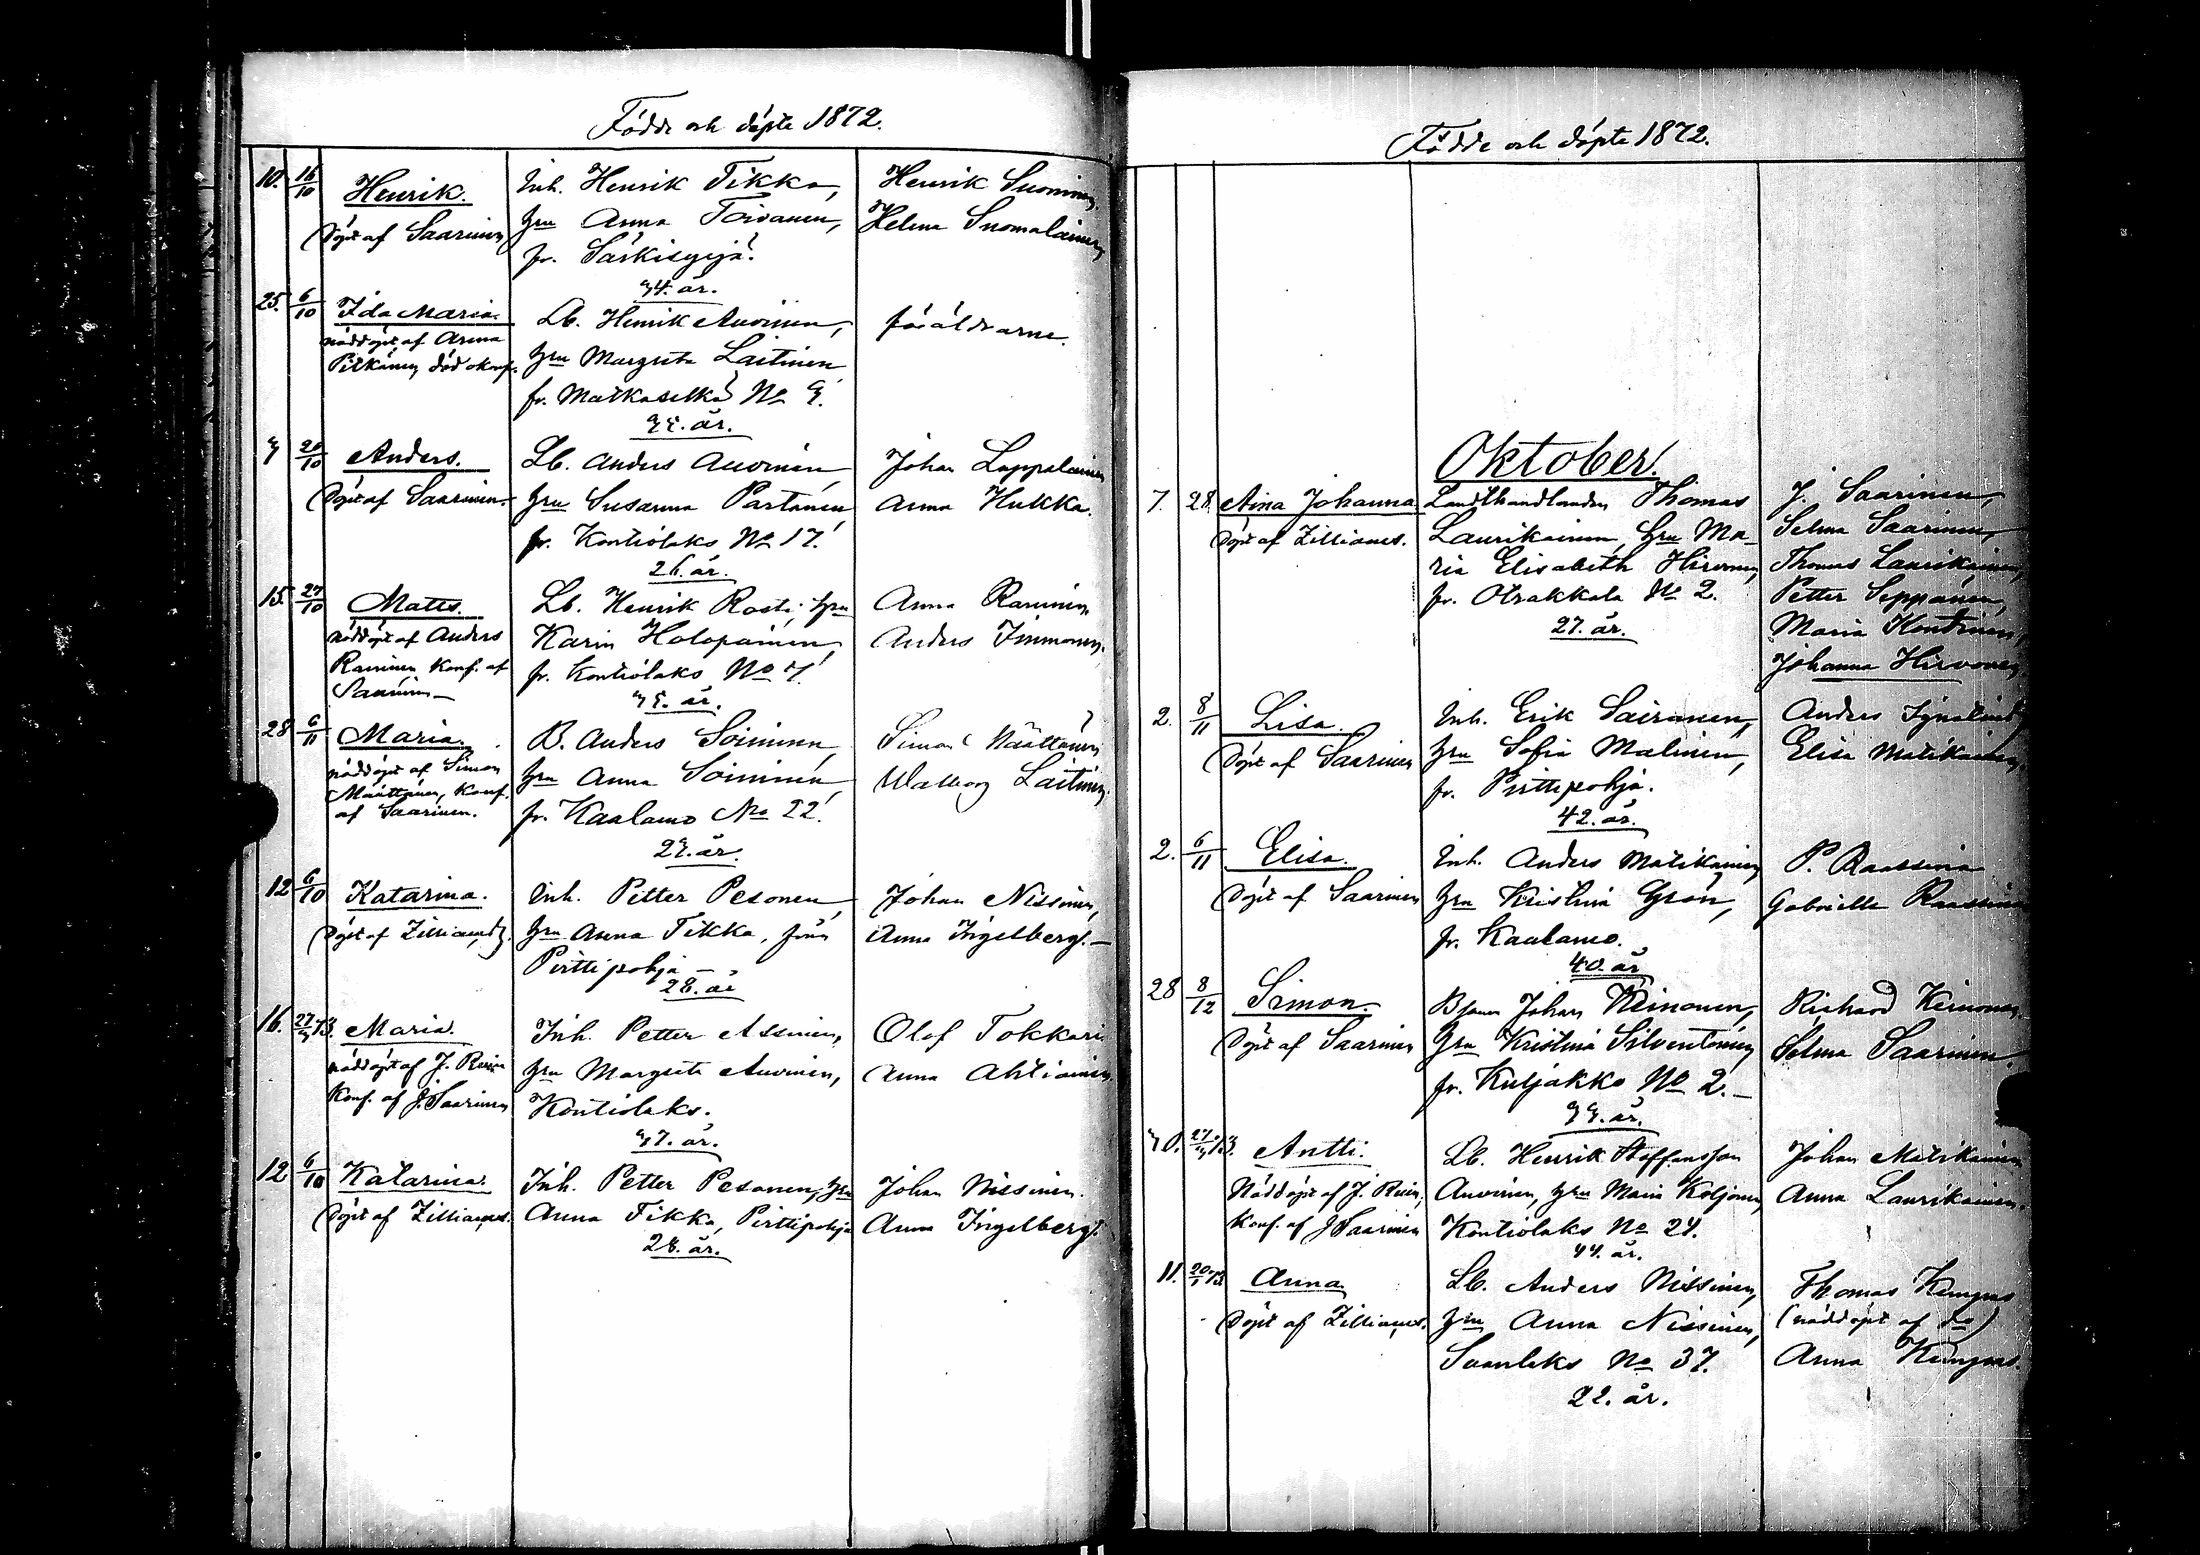 Födde och döpte 1872.
10. 16/10 Henrik. Inh. Henrik Tikka, Henrik Suominen
Döpt af Saarinen hru Anna Toivanen, Helena Suomalainen
fr. Särkisyrjä.
34. år.
25. 6/10 Ida Maria. Lb. Henrik Auvinen, föräldrarne.
nöddöpt af Anna hru Margreta Laitinen
Pitkänen, död okonf. fr. Matkaselkä No 9.
år.
20/10 Anders. Lb. Anders Auvinen Johan Lappalainen
Döpt af Saarinen. hru Susanna Partanen Anna Hukka.
fr. Kontiolaks No 17.
26. år.
15. 27/10 Matts. Lb. Henrik Rosti, hru Anna Raninen
nöddöpt af Anders Karin Holopainen Anders Immonen.
Raninen Konf. af fr. Kontiolaks No
Saarinen — år.
28 6/11 Maria. B. Anders Soininen Simon Määttänen
nöddöpt af Simon hru Anna Soininen Walborg Laitinen
Määttänen, Konf. fr. Kaalamo No 22.
af Saarinen.
år.
12 6/10 Katarina. Inh. Petter Pesonen Johan Nissinen,
Döpt af Zilliacus. hru Anna Tikka, från Anna Ingelberg. —
Pirttipohja —
28. år
16. Maria. Inh. Petter Assinen, Olof Tokkari
nöddöpt af J. Ruin hru Margreta Auvinen, Anna Ahtiainen.
Konf. af J. Saarinen Kontiolaks.
37. år.
12 6/10 Katarina. Inh. Petter Pesonen, hru Johan Nissinen.
Döpt af Zilliacus. Anna Tikka, Pirttipohja Anna Ingelberg.
28. år.
Födde och döpte 1872.
Oktober.
7. 28. Aina Johanna Landthandlanden Thomas J. Saarinen,
Döpt af Zilliacus. Laurikainen, hru Ma- Selma Saarinen,
ria Elisabeth Hirvonen, Thomas Laurikainen,
fr. Otrakkala No 2. Petter Seppänen,
27. år. Maria Kontinen,
Johanna Hirvonen
2. 8/11 Lisa. Inh. Erik Sairanen, Anders
Döpt af Saarinen hru Sofia Malinen, Elisa Matikainen,
fr. Pirttipohja.
42. år.
2. 6/11 Elisa. Inh. Anders Matikainen P. Raassina
Döpt af Saarinen hru Kristina Grön, Gabrielle Raassina
fr. Kaalamo.
40. år
28 8/12 Simon. Bsonen Johan Keinonen, Richard Keinonen.
Döpt af Saarinen hru Kristina Silventoinen Selma Saarinen.
fr. Kuljakko No 2. —
år.
30. Antti. Lb. Henrik Staffansson Johan Matikainen
Nöddöpt af J. Ruin, Auvinen, hru Maria Koljonen Anna Laurikainen.
Konf. af J Saarinen Kontiolaks No 24.
44. år.
11. 20/1 73 Anna Lb. Anders Nissinen, Thomas Kemppas
Döpt af Zilliacus. hru Anna Nissinen, (nöddöpt af do)
Suurlaks No 37. Anna Kemppas.
22. år.